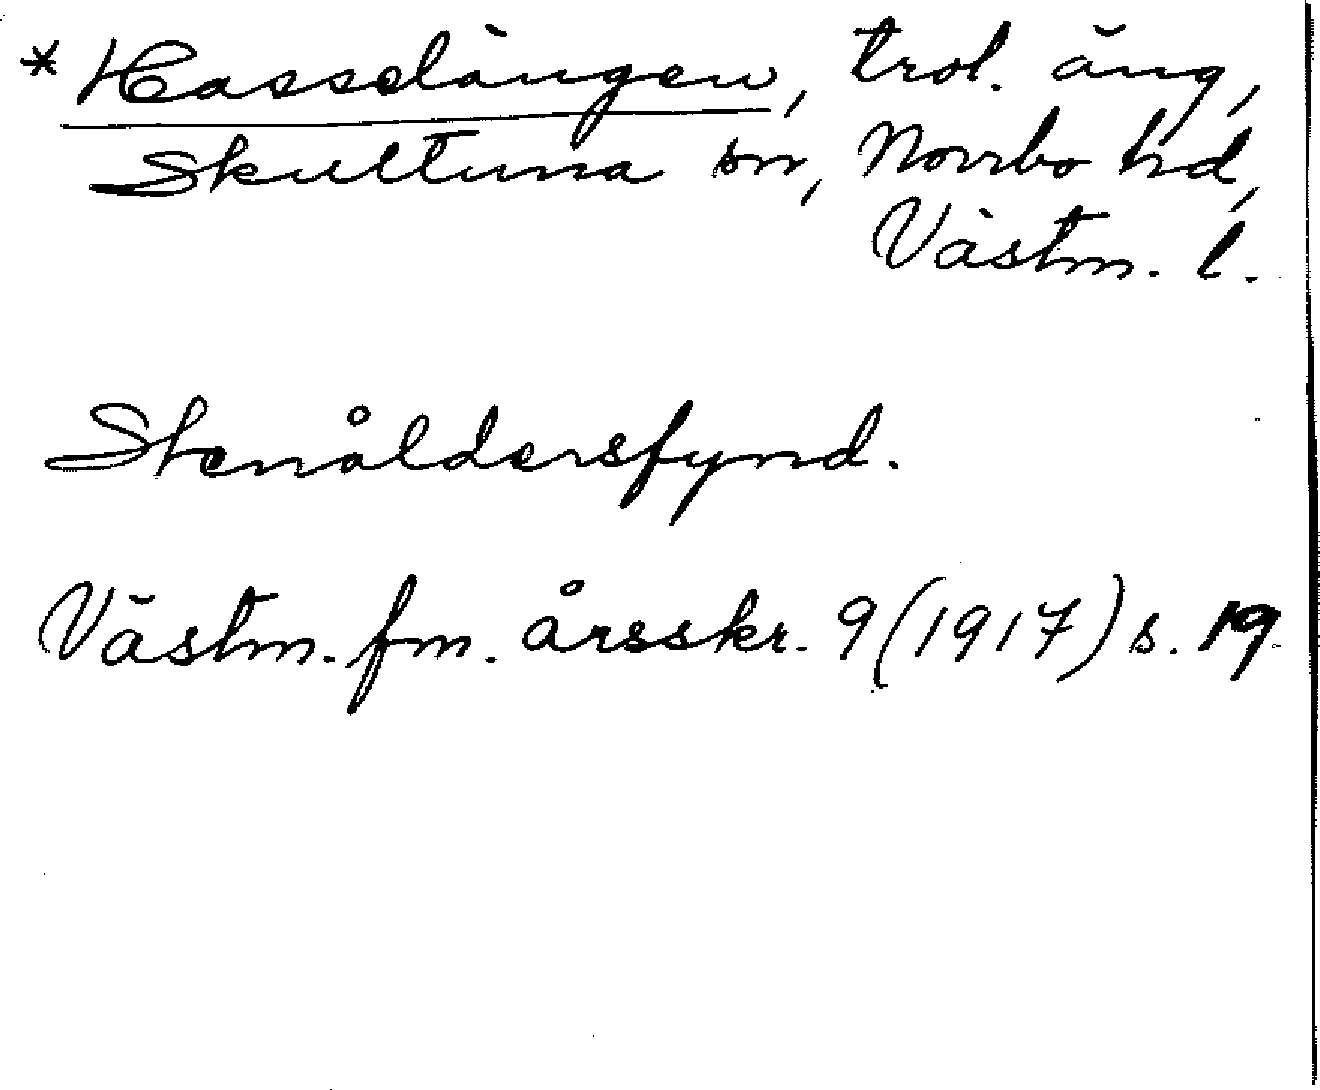 * Hasselängen, trol. äng,
Skultuna sn, Norrbo hd,
Västm. l.
Stenåldersfynd.
Västm. fm. årsskr. 9 (1917) s. 19